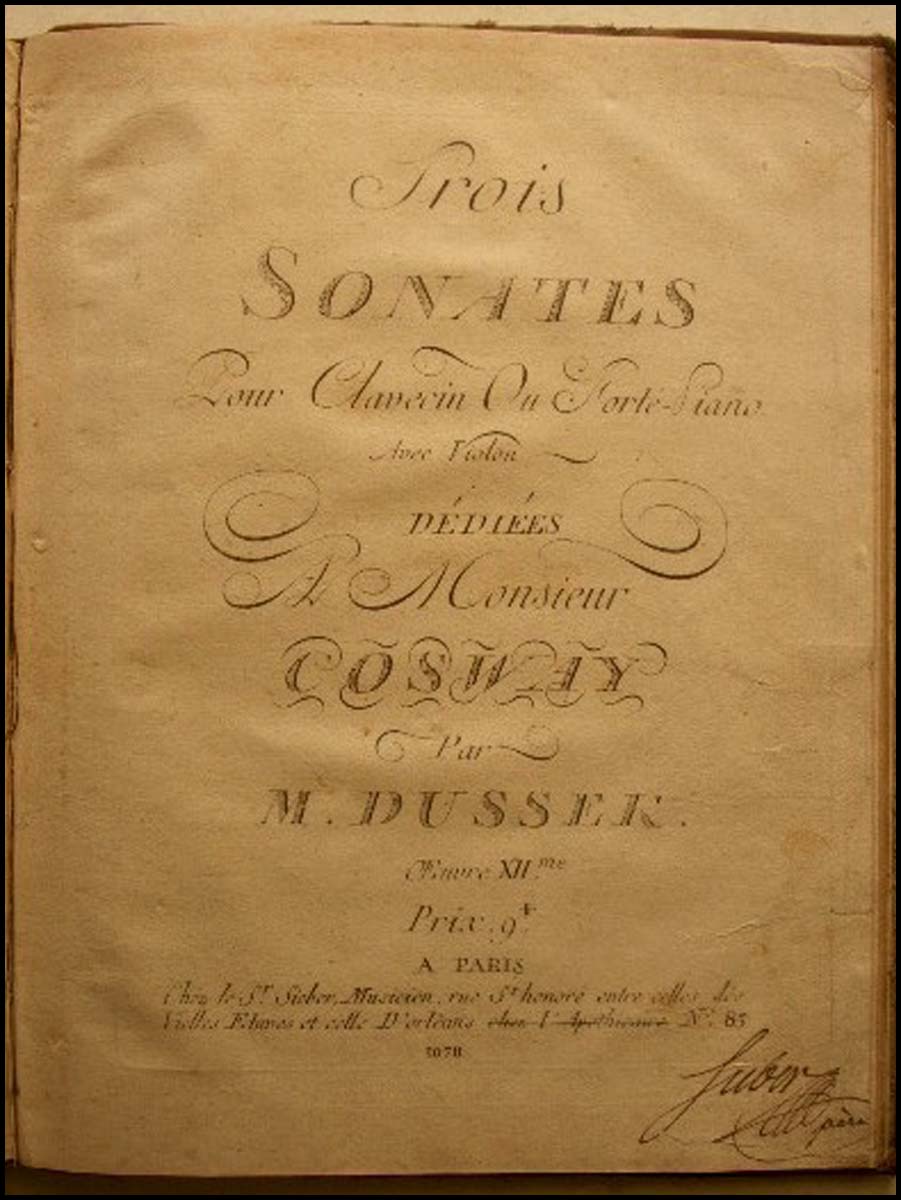 Trois
SONATES
Pour Clavecin Ou Forte-Piano
Avec Violon
DÉDIÉES
A Monsieur
COSWAY
Par
M. DUSSEK.
Œuvre XII.me
Prix. 9tt
A PARIS
Chez le Sr. Sieber, Musicien, rue St honore entre celles des
Vielles Etuves et celle D'orléans chez l'Apothicaire No. 85
1078
père